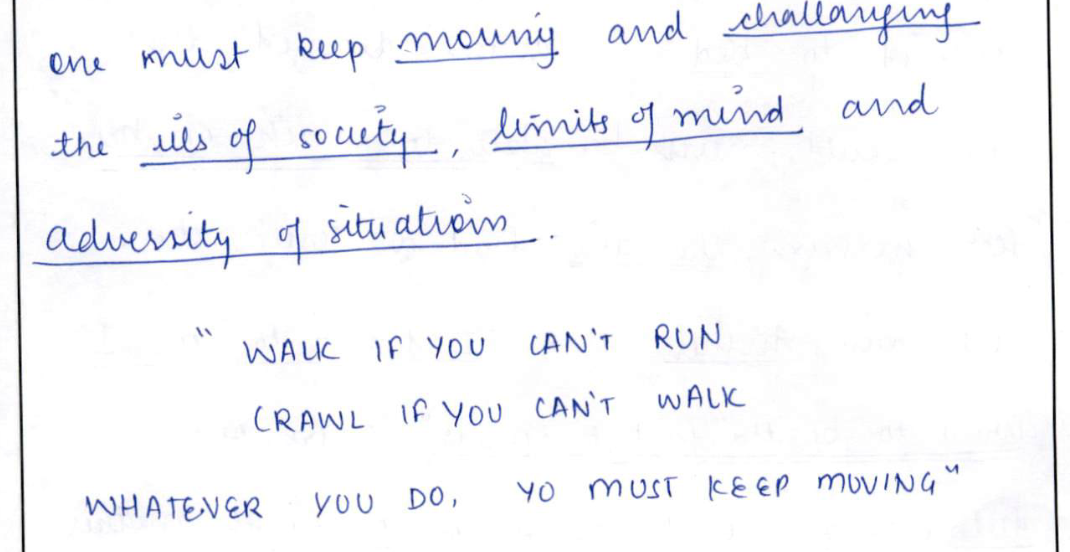 one must keep moving and challanging
the ills of society, limits of mind and
adversity of situations.
" WALK IF YOU CAN'T RUN
CRAWL IF YOU CAN'T WALK
WHATEVER YOU DO, YO MUST KEEP MOVING"